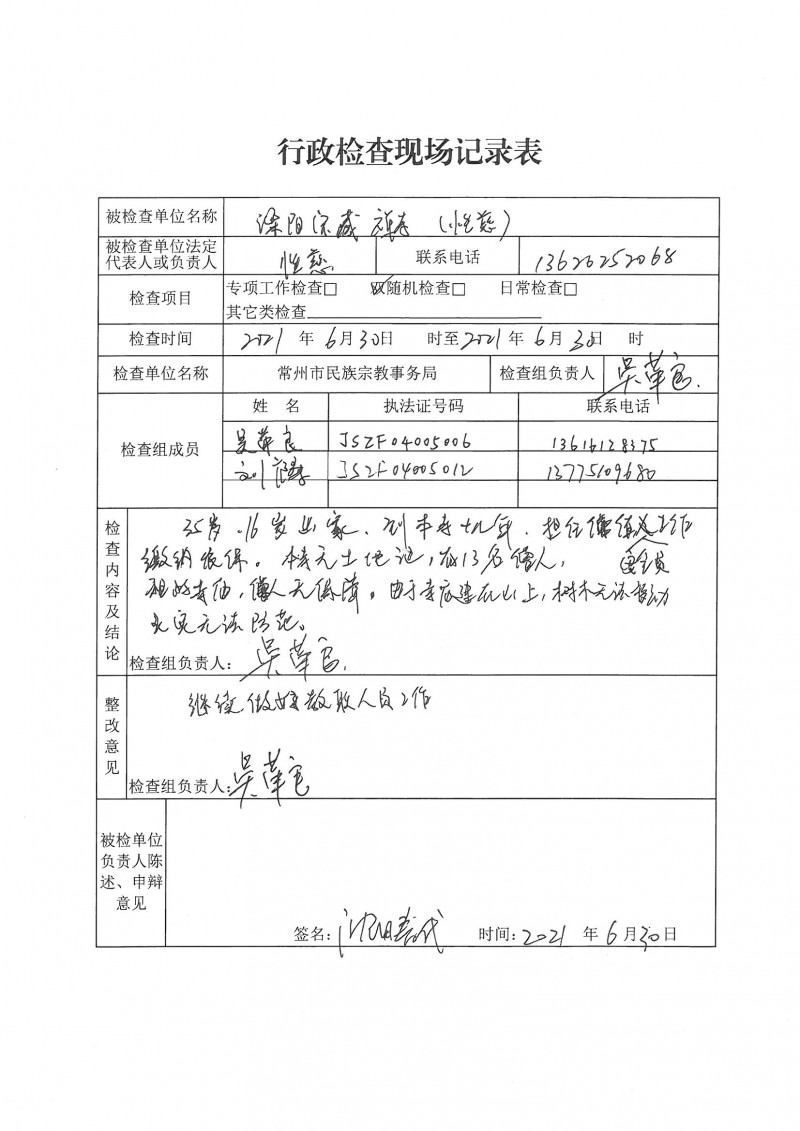 行政检查现场记录表
被检查单位名称 溧阳 禅寺（性慈）
被检查单位法定
代表人或负责人 性慈 联系电话 13626252068
检查项目 专项工作检查□ 双随机检查□ 日常检查□
其它类检查
检查时间 2021 年 6月30日 时至2021 年 6月30日 时
检查单位名称 常州市民族宗教事务局 检查组负责人 吴革
姓 名 执法证号码 联系电话
检查组成员
吴革 JSZF04005006 13616128375
刘 JSZF04005012 13775109680
检查内容及结论
35岁、16岁出家、到本寺 年、担任 工作
缴纳 保。 无土地证，有13名僧人，
寺庙，僧人无保障。由于寺庙建在山上，树木无法
火灾无法防范。
检查组负责人： 吴革
整改意见
继续做好教职人员工作
检查组负责人： 吴革
被检单位
负责人陈
述、申辩
意见
签名： 时间：2021 年 6月30日